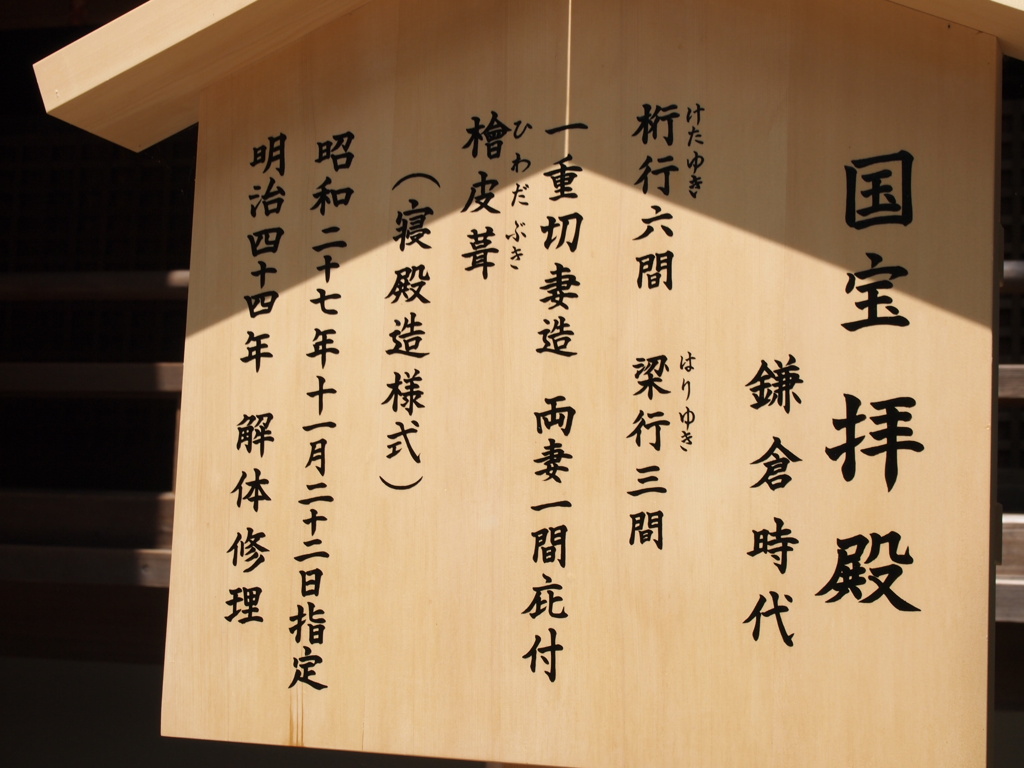 国宝 拝殿
鎌倉時代
桁行六間 梁行三間
けたゆき はりゆき
一重切妻造 両妻一間庇付
檜皮葺
ひわだぶき
(寝殿造様式)
昭和二十七年十一月二十二日指定
明治四十四年 解体修理